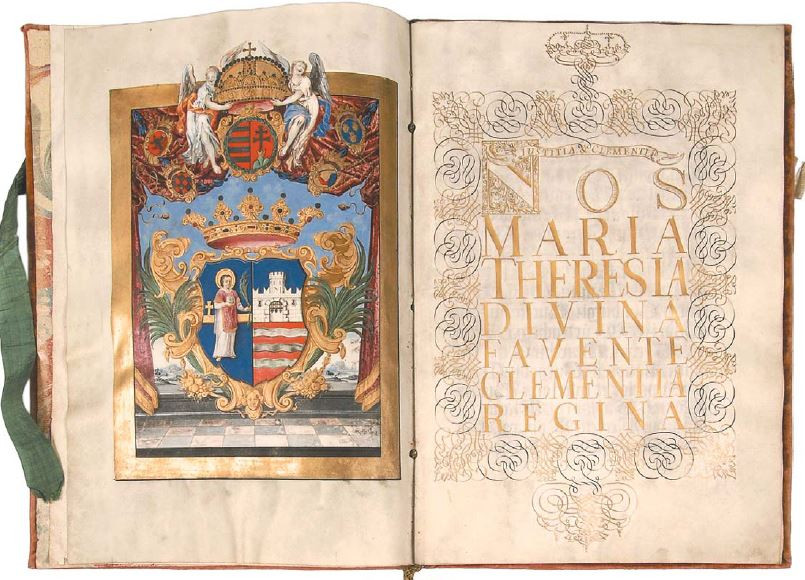 IUSTITIA & CLEMENTIA
NOS
MARIA
THERESIA
DIVINA
FAVENTE
CLEMENTIA
REGINA